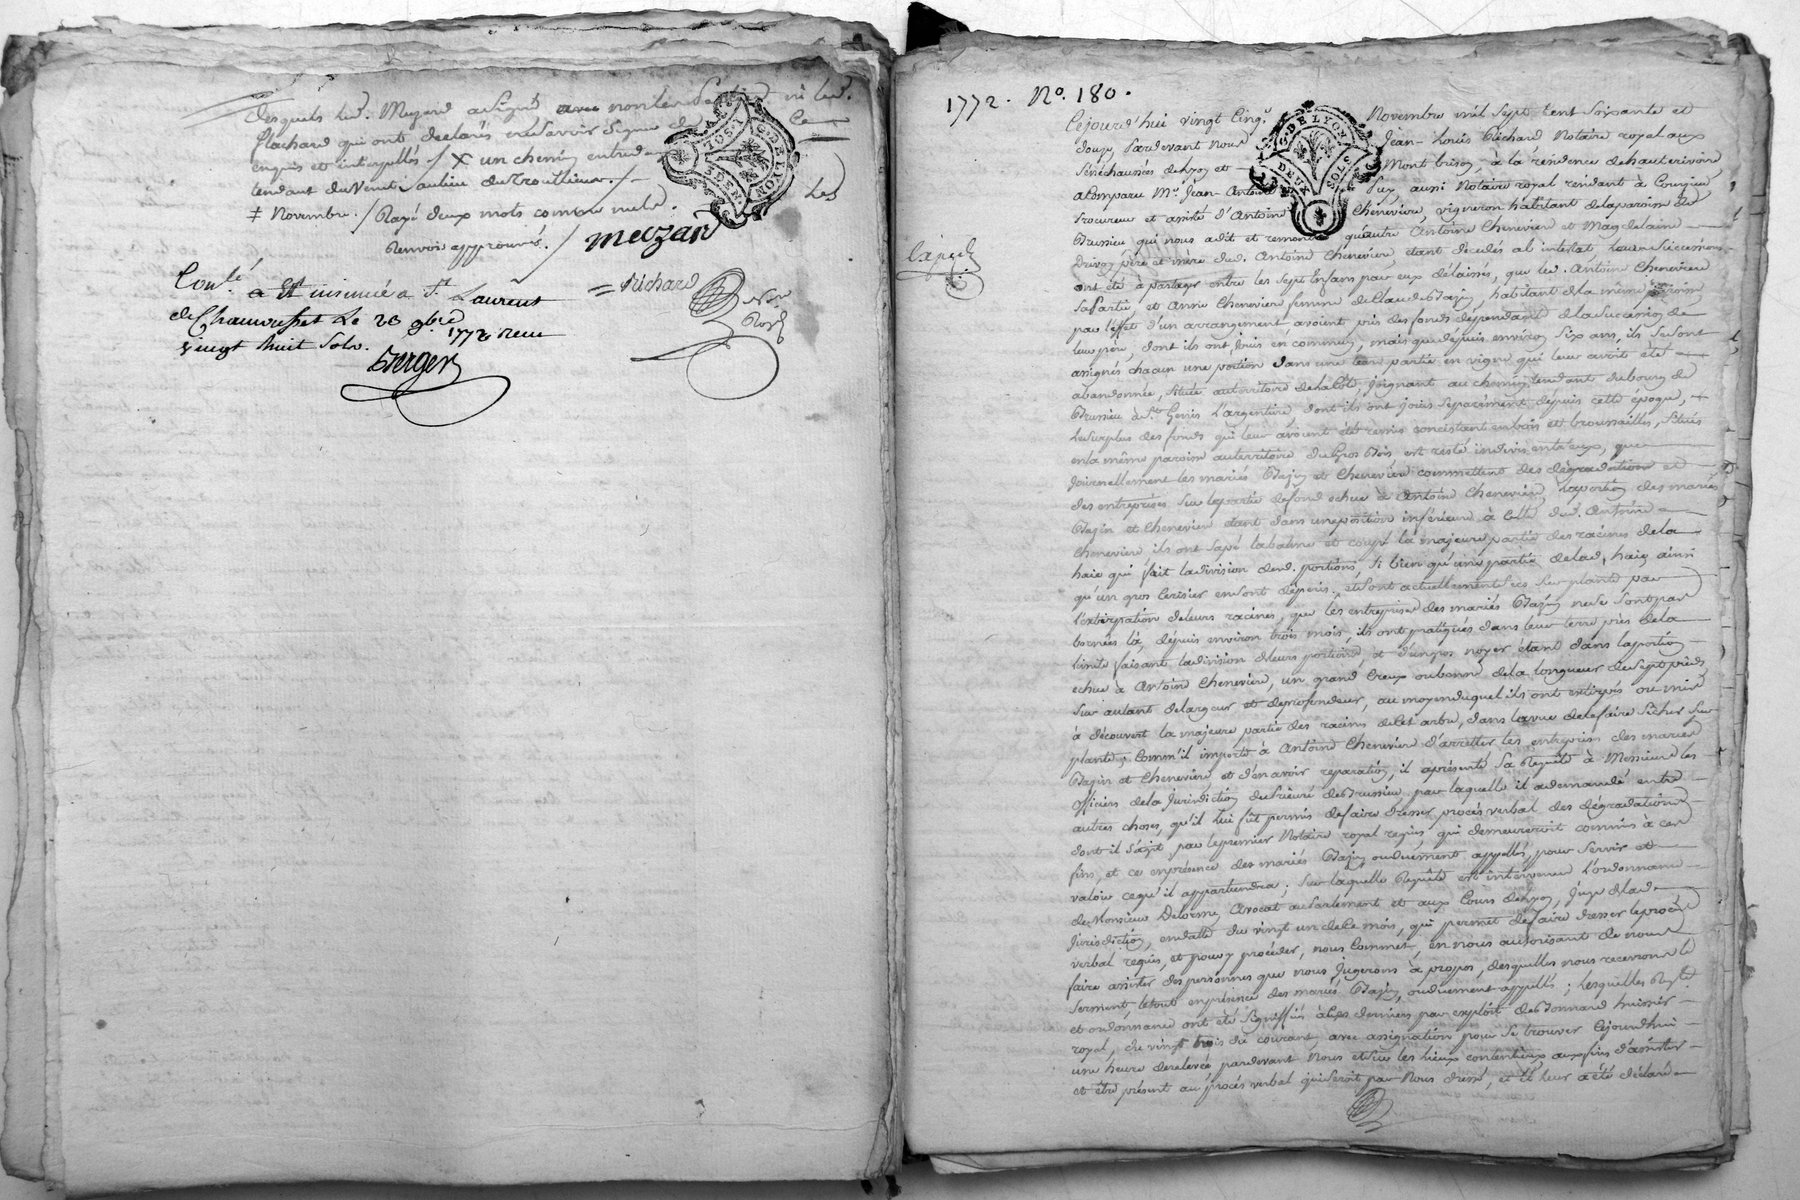 desquels led. Muzard a Signé avec non led. ni led.
flachard qui ont declarés ne savoir Signer de ce
enquis et interpellés / X un chemin entred.
tendant du Venet au lieu du Trouillieu. /
‡ Novembre. / Rayé deux mots comme nuls.
Renvois approuvés. / Les
meuzard
Richard
Conlé
a Et insinué a St. Laurent
de Chamousset Le 28 9bre 1772 reçu
vingt huit Sols.
Berger
G. DE LYON
DEUX SOLS
1772. No. 180.
Cejourd'hui vingt Cinq. Novembre mil Sept Cent Soixante et
douze, Pardevant Nous Jean-Louis Richard Notaire royal aux
Sénéchaussées de Lyon et Montbrison, à la résidence de hauterivoire
a Comparu Me. Jean-Antoine Puy, aussi Notaire royal résidant à Courzieu,
Procureur et assisté d'Antoine Chenevière, vigneron habitant de la paroisse de
Brussieu qui nous a dit et remontré qu'autre Antoine Chenevière et Magdelaine
père et mère dud. Antoine Chenevière étant décédés ab intestat, leurs Successions
ont été à partager entre les Sept Enfans par eux délaissés, que led. Antoine Chenevière
Sa Partie, et Anne Chenevière femme de Claude Bazin, habitant de la même paroisse
par l'effet d'un arrangement avoient pris des fonds dépendant de la Succession de
leur père, dont ils ont jouis en commun, mais que depuis environ Six ans, ils se sont
assignés chacun une portion dans une partie en vigne qui leur avoit été
abandonnée, Située au territoire de la Côte, joignant au chemin tendant du bourg de
Brussieu à St. Genis L'argentière dont ils ont jouis séparément depuis cette époque,
le Surplus des fonds qui leur avoient été remis consistant en bois et broussailles, Situés
en la même paroisse au territoire du Gros Bois, est resté indivis entr'eux, que
journellement les mariés Bazin et Chenevière commettent des dégradations et
des entreprises Sur la partie de fond echue à Antoine Chenevière, la portion des mariés
Bazin et Chenevière étant dans une position inférieure à Celle dud. Antoine
Chenevière, ils ont Sapé la balme et coupé la majeure partie des racines de la
haie qui fait la division desd. portions, Si bien qu'une partie de lad. haie ainsi
qu'un gros Cerisier en sont dépéris, et sont actuellement secs Sur plante par
l'extirpation de leurs racines, que les entreprises des mariés Bazin ne se sont pas
bornées là, depuis environ trois mois, ils ont pratiqués dans leur terre près de la
limite faisant la division de leurs portions, et d'un gros noyer étant dans la portion
echue à Antoine Chenevière, un grand Creux de la longueur de Sept pieds
Sur autant de largeur et de profondeur, au moyen duquel ils ont extirpés ou mis
à découvert la majeure partie des racines de Cet arbre, dans la vue de le faire Sécher Sur
plante; Comm'il importe à Antoine Chenevière d'arrêter les entreprises des mariés
Bazin et Chenevière et d'en avoir réparation, il a présenté Sa Requête à Messieurs les
Officiers de la Jurisdiction du Prieuré de Brussieu, par laquelle il a demandé entre
autres choses, qu'il lui fût permis de faire dresser procès verbal des dégradations
dont il S'agit par le premier Notaire royal requis, qui demeureroit commis à ces
fins, et ce en présence des mariés Bazin, ou duement appellés, pour Servir et
valoir ce qu'il appartiendra; Sur laquelle Requête est intervenue L'ordonnance
de Monsieur Delorme, Avocat au Parlement et aux Cours de Lyon, Juge de lad.
Jurisdiction, en datte du vingt un de Ce mois, qui permet de faire dresser le procès
verbal requis, et pour y procéder, nous Commet, en nous autorisant de nous
faire assister des personnes que nous jugerons à propos, desquelles nous recevrons le
Serment, le tout en présence des mariés Bazin, ou duement appellés; Lesquelles Rqte.
et ordonnance ont été Signiffiés à Ces derniers par exploit de Bonnard huissier
royal, du vingt trois du courant, avec assignation pour Se trouver Cejourdhui
une heure de relevée pardevant Nous et Sur les lieux contentieux aux fins d'assister
et être présent au procès verbal qui seroit par Nous dressé, et il leur a été déclaré